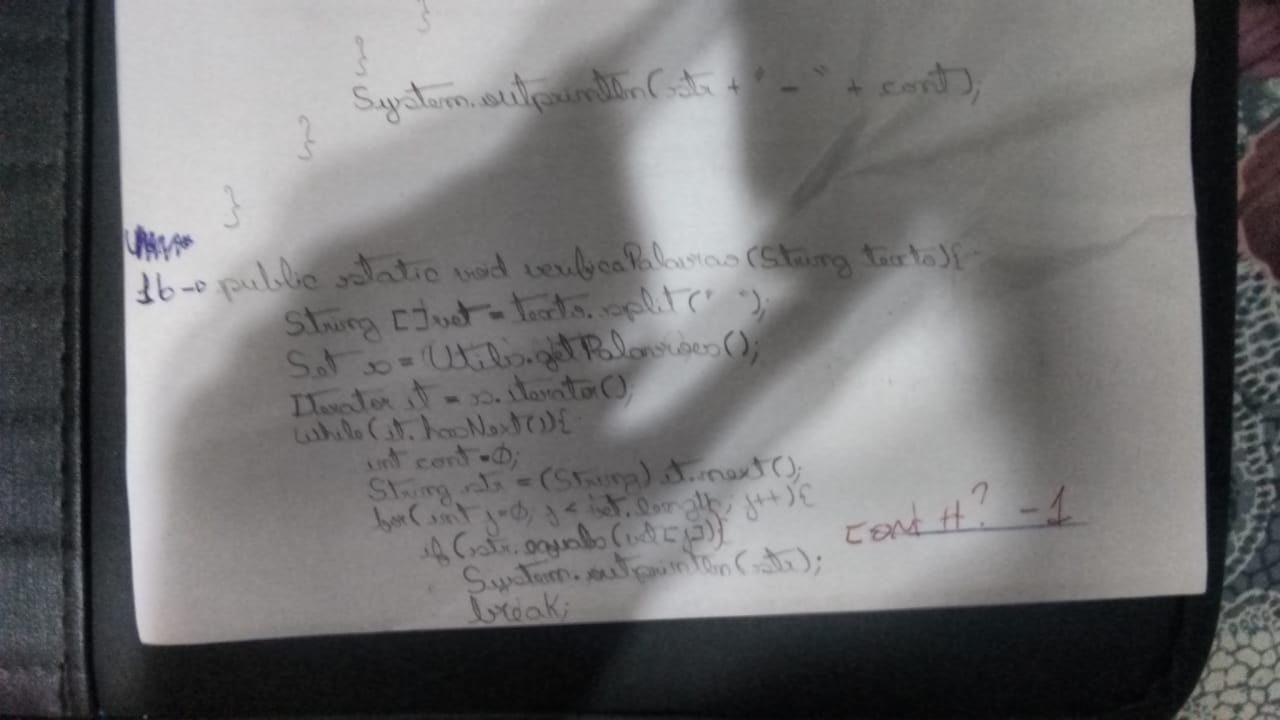 }
}
System.outprintln(str + " - " + cont);
}
}
16-o public static void verificaPalavras (String texto){
String []vet = texto.split(" ");
Set s = Utils.getPalavroes();
Iterator it = s.iterator();
while(it.hasNext()){
int cont=0;
String str = (String) it.next();
for(int j=0; j < vet.length; j++){
if(str.equals(vet[j])
cont ++? -1
System.outprintln(str);
break;